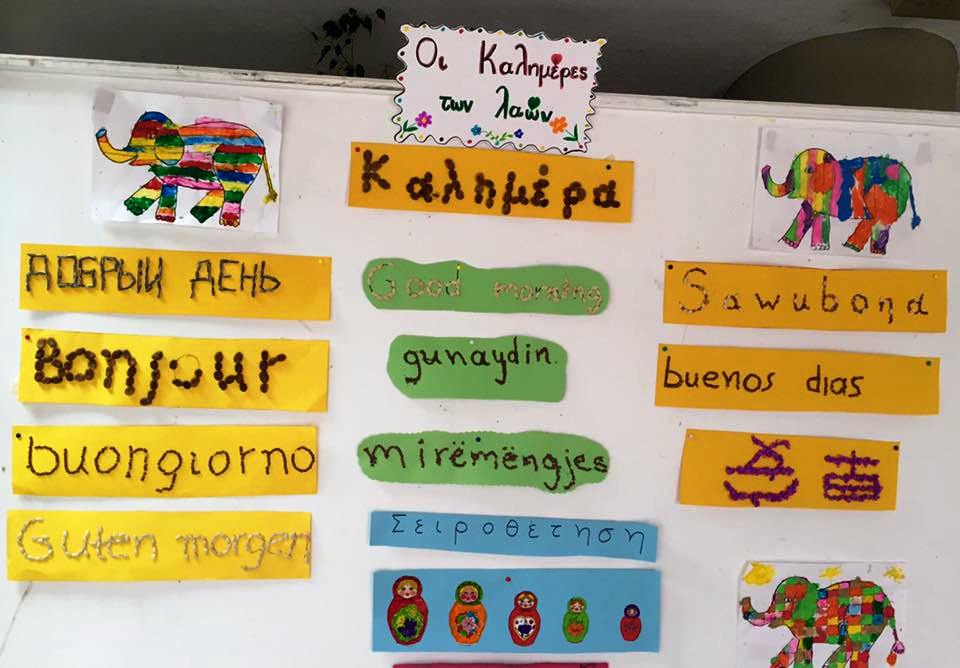 Οι Καλημέρες
των λαών
Καλημέρα
ДОБРЫЙ ДЕНЬ
Bonjour
buongiorno
Guten morgen
Good morning
gunaydin.
mirëmëngjes
Σειροθέτηση
Sawubona
buenos dıas